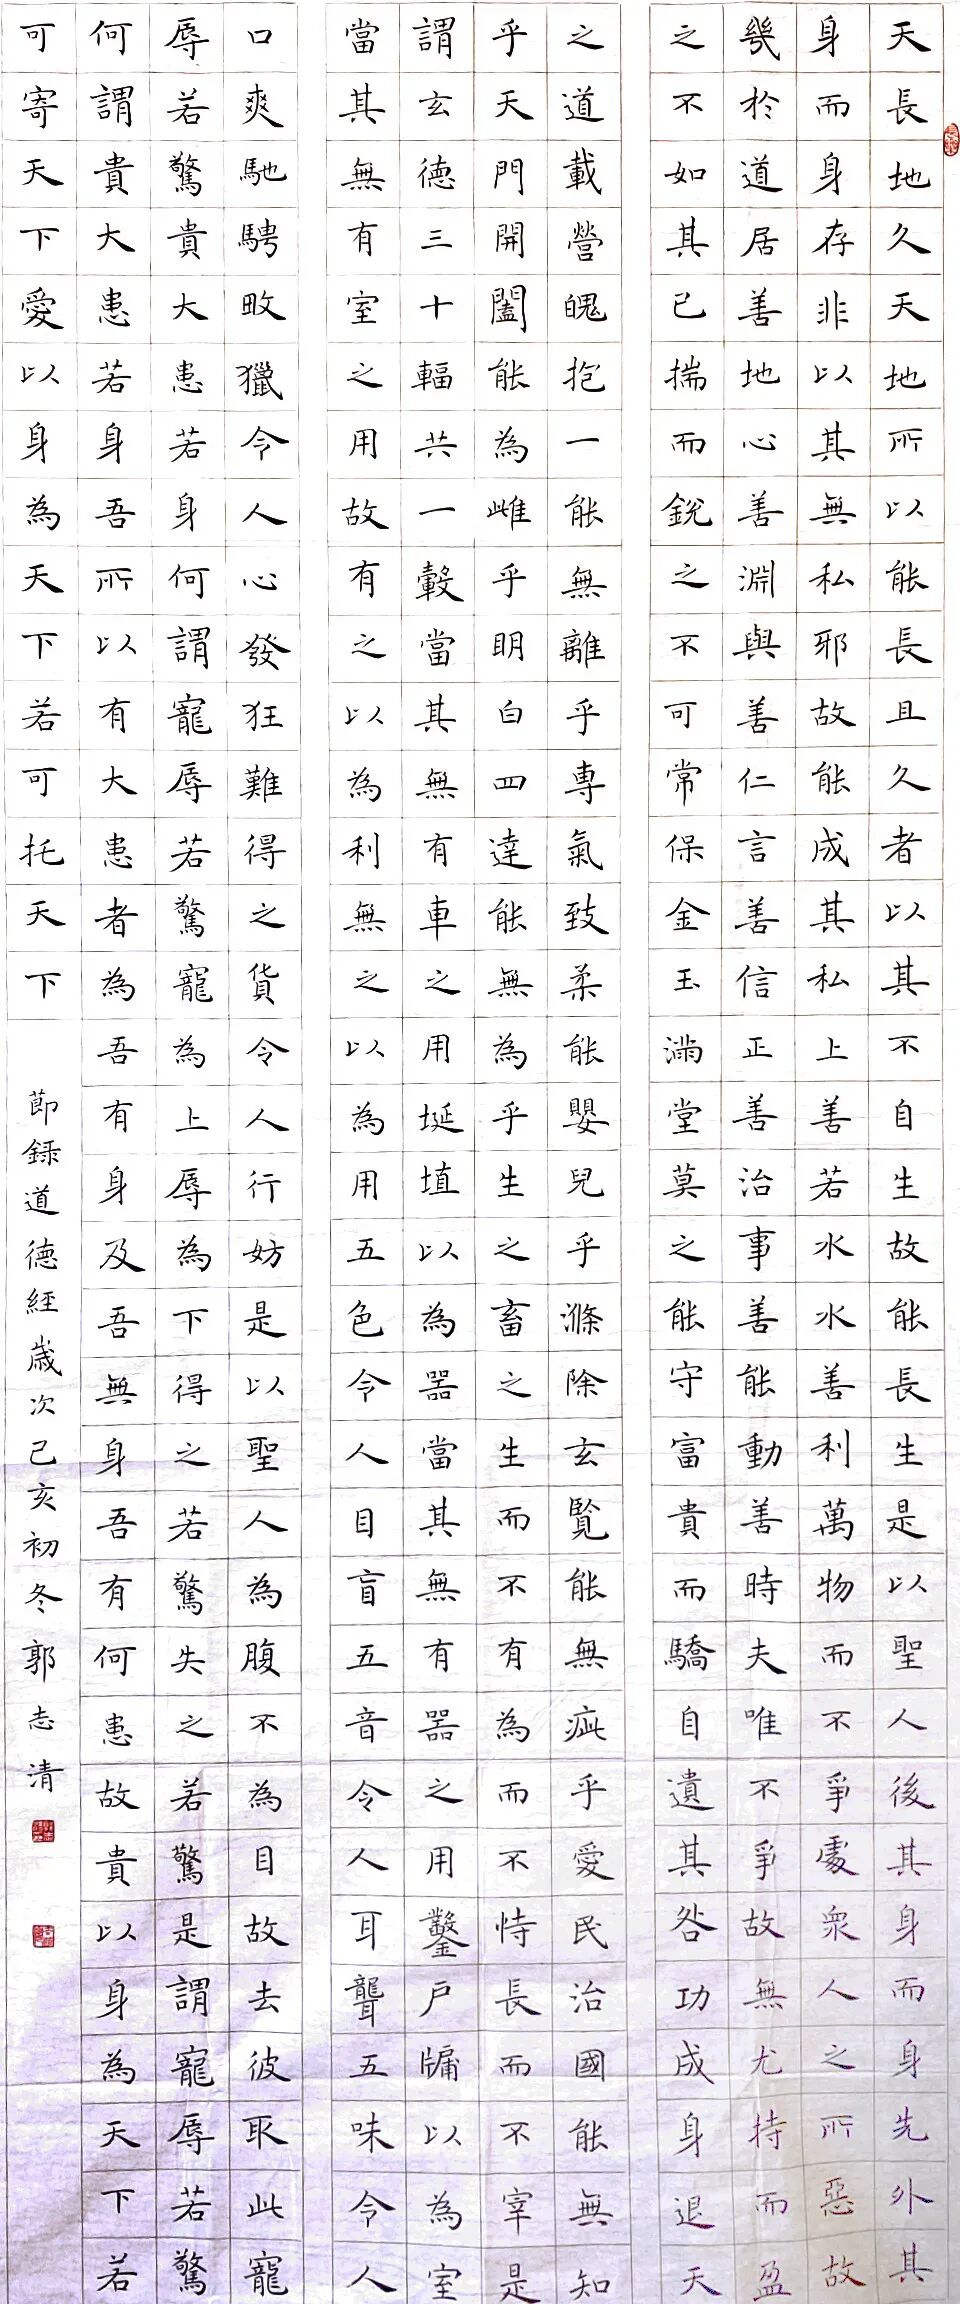 天長地久天地所以能長且久者以其不自生故能長生是以聖人後其身而身先外其
身而身存非以其無私邪故能成其私上善若水水善利萬物而不爭處衆人之所惡故
幾於道居善地心善淵與善仁言善信正善治事善能動善時夫唯不爭故無尤持而盈
之不如其已揣而銳之不可常保金玉滿堂莫之能守富貴而驕自遺其咎功成身退天
之道載營魄抱一能無離乎專氣致柔能嬰兒乎滌除玄覽能無疵乎愛民治國能無知
乎天門開闔能為雌乎明白四達能無為乎生之畜之生而不有為而不恃長而不宰是
謂玄德三十輻共一轂當其無有車之用埏埴以為器當其無有器之用鑿戶牖以為室
當其無有室之用故有之以為利無之以為用五色令人目盲五音令人耳聾五味令人
口爽馳騁畋獵令人心發狂難得之貨令人行妨是以聖人為腹不為目故去彼取此寵
辱若驚貴大患若身何謂寵辱若驚寵為上辱為下得之若驚失之若驚是謂寵辱若驚
何謂貴大患若身吾所以有大患者為吾有身及吾無身吾有何患故貴以身為天下若
可寄天下愛以身為天下若可托天下
節録道德經歲次己亥初冬郭志清